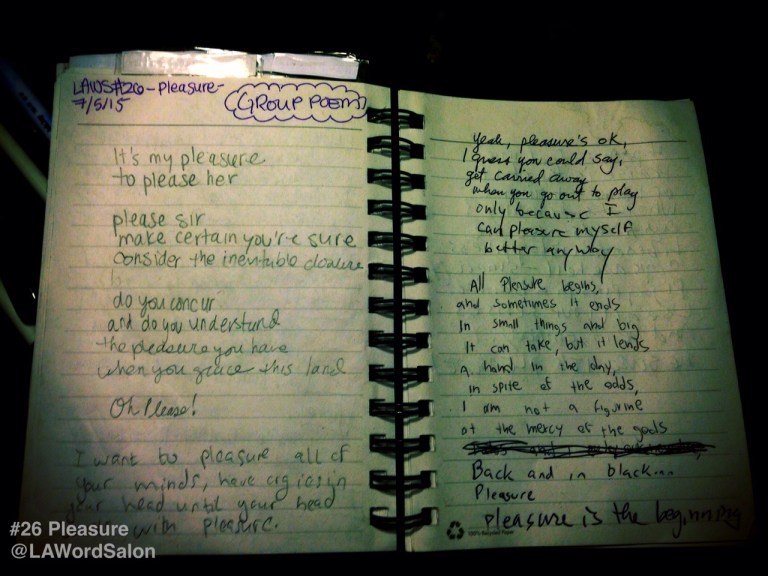 LAWS#26-Pleasure-
7/5/15
GROUP POEM
It's my pleasure
to please her
please sir
make certain you're sure
consider the inevitable closure
do you concur
and do you understand
the pleasure you have
when you grace this land
Oh Please!
I want to pleasure all of
your minds, have orgies in
your head until your head
with pleasure.
yeah, pleasure's ok,
I guess you could say,
get carried away
when you go out to play
only because I
can pleasure myself
better anyway
All Pleasure begins,
and sometimes it ends
In small things and big
It can take, but it lends
a hand in the day,
in spite of the odds,
I am not a figurine
at the mercy of the gods
Back and in black...
Pleasure
pleasure is the beginning
100% Recycled Paper
#26 Pleasure
@LAWordSalon